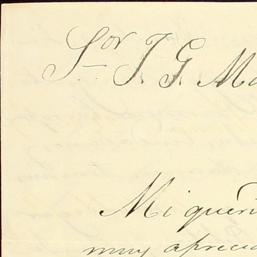 Sor T. G. Ma
Mi querid
muy aprecia